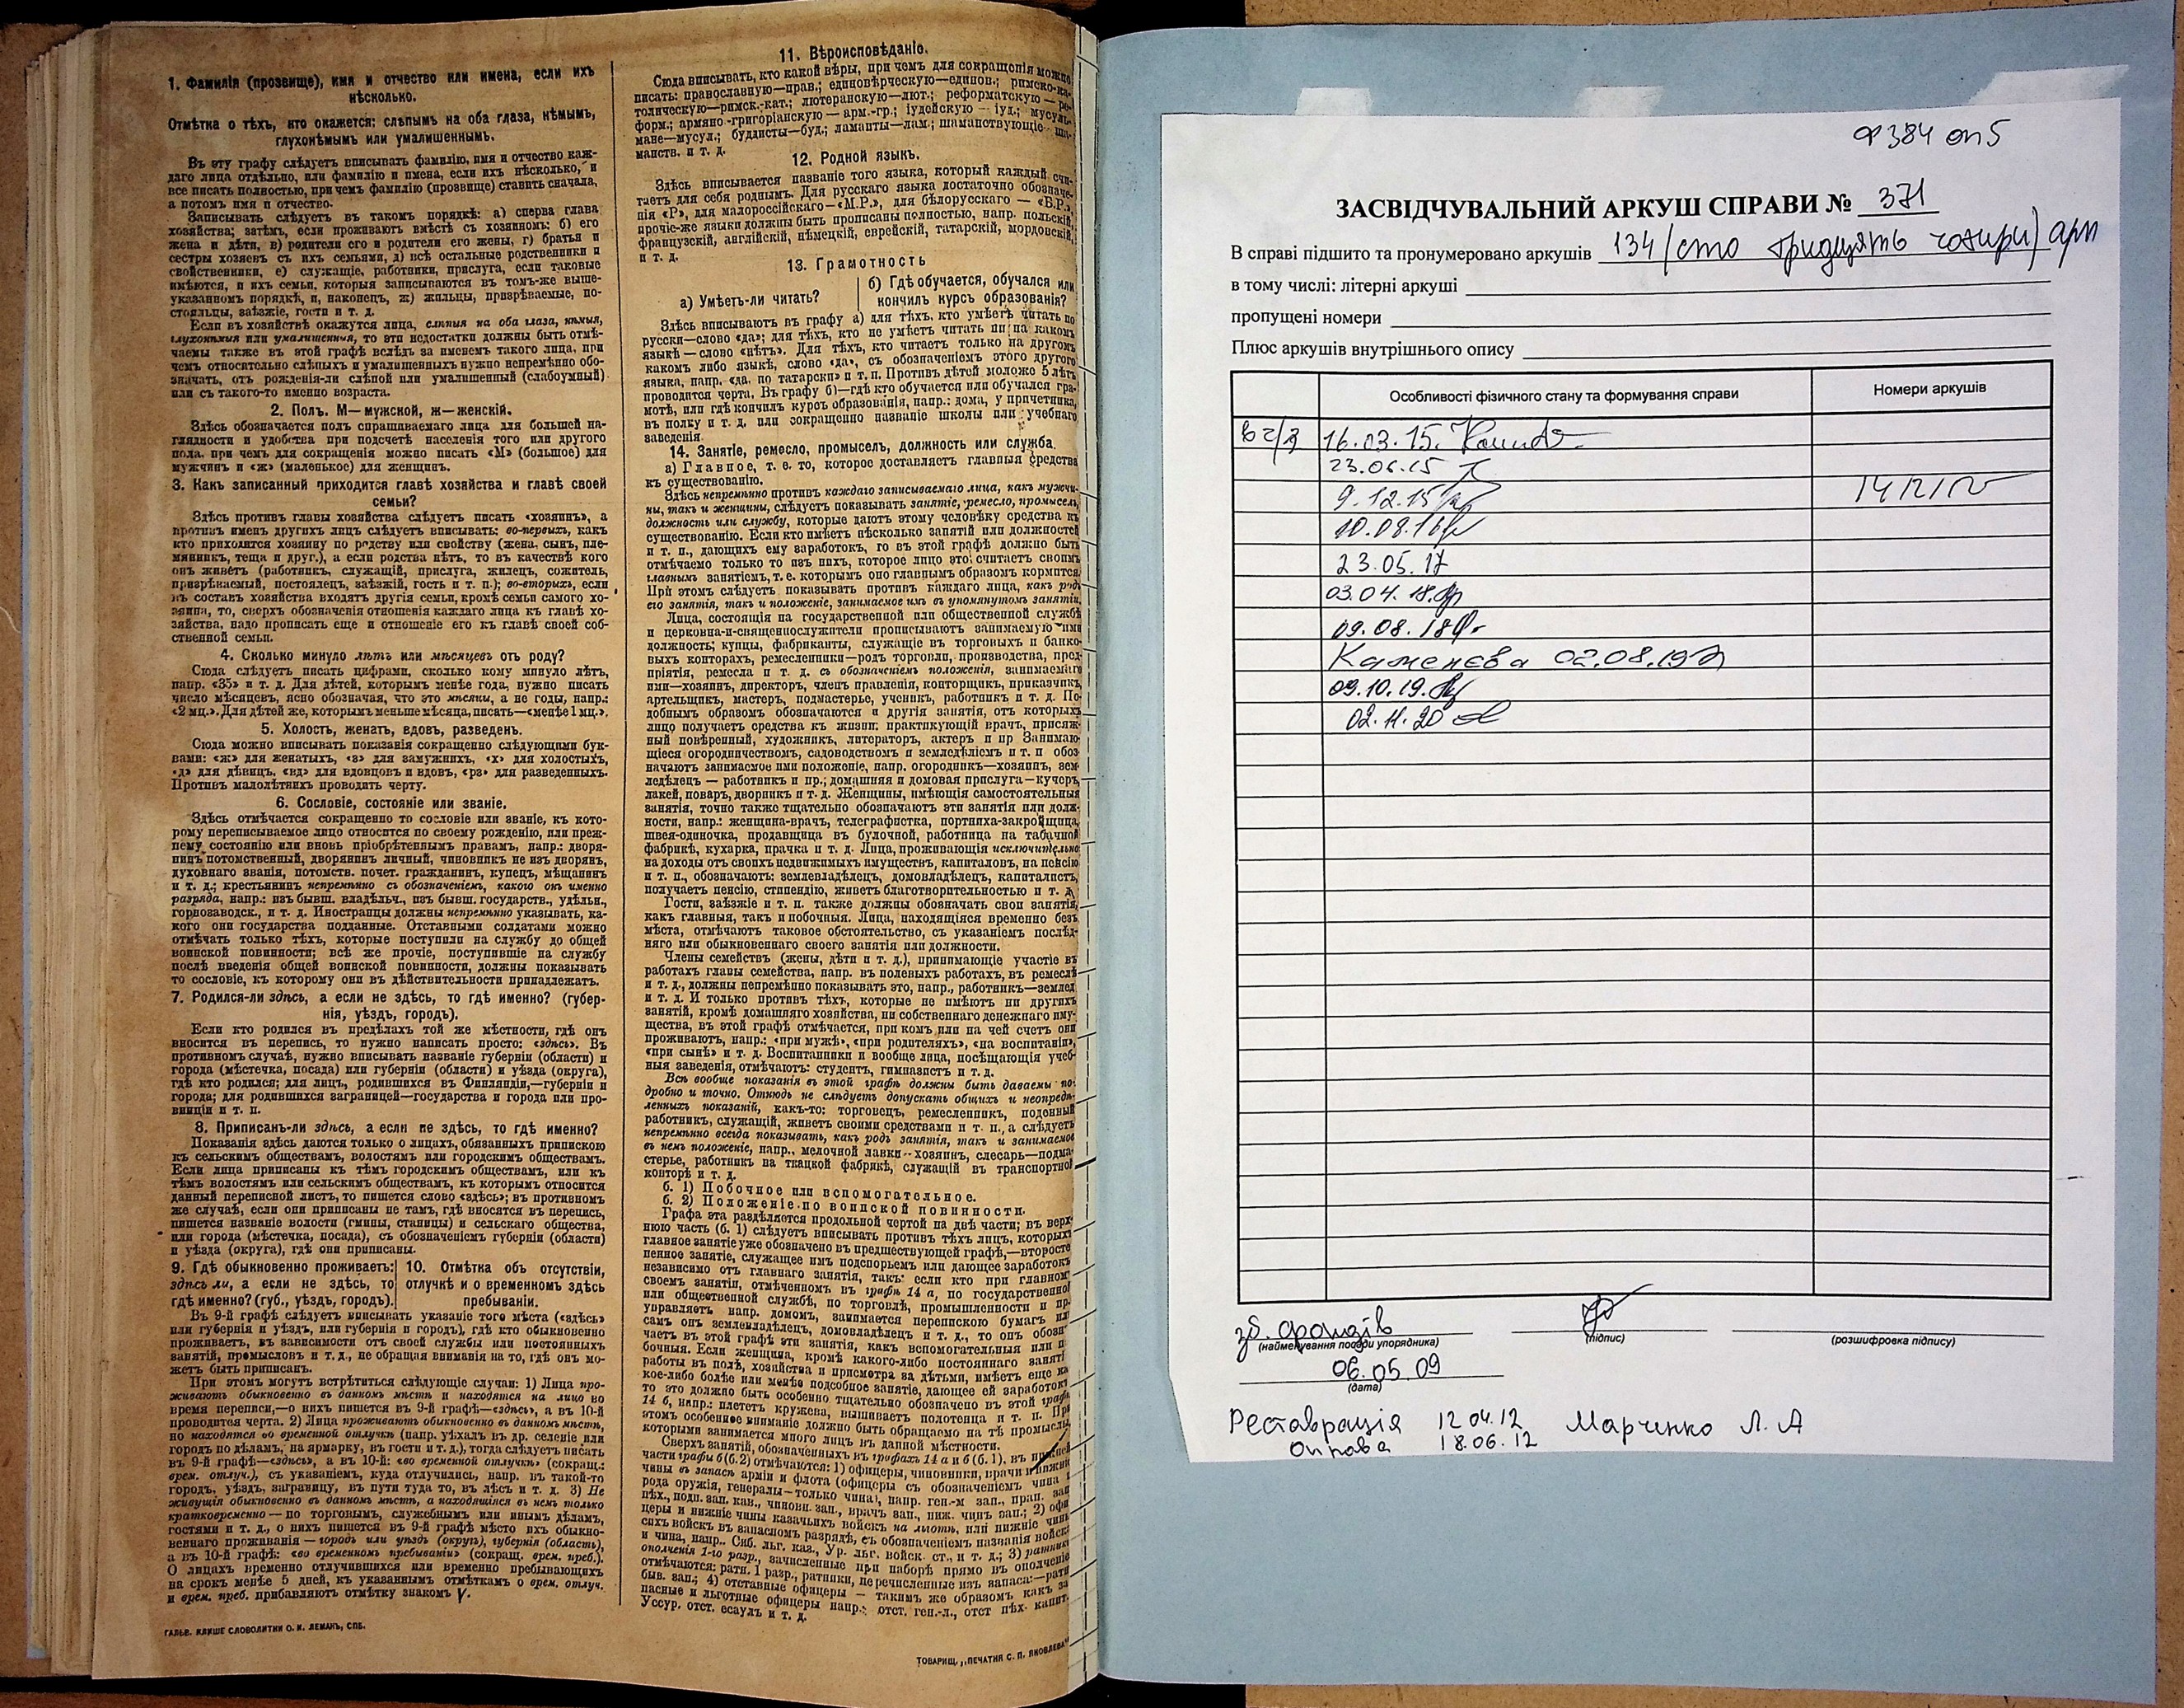 1. Фамилія (прозвище), имя и отчество или имена, если ихъ
нѣсколько.
Отмѣтка о тѣхъ, кто окажется: слѣпымъ на оба глаза, нѣмымъ,
глухонѣмымъ или умалишеннымъ.
Въ эту графу слѣдуетъ вписывать фамилію, имя и отчество каж-
даго лица отдѣльно, или фамилію и имена, если ихъ нѣсколько, и
все писать полностью, при чемъ фамилію (прозвище) ставить сначала,
а потомъ имя и отчество.
Записывать слѣдуетъ въ такомъ порядкѣ: а) сперва глава
хозяйства; затѣмъ, если проживаютъ вмѣстѣ съ хозяиномъ: б) его
жена и дѣти, в) родители его и родители его жены, г) братья и
сестры хозяевъ съ ихъ семьями, д) всѣ остальные родственники и
свойственники, е) служащіе, работники, прислуга, если таковые
имѣются, и ихъ семьи, которыя записываются въ томъ-же выше-
указанномъ порядкѣ, и, наконецъ, ж) жильцы, призрѣваемые, по-
стояльцы, заѣзжіе, гости и т. д.
Если въ хозяйствѣ окажутся лица, слѣпыя на оба глаза, нѣмыя,
глухонѣмыя или умалишенныя, то эти недостатки должны быть отмѣ-
чаемы также въ этой графѣ вслѣдъ за именемъ такого лица, при
чемъ относительно слѣпыхъ и умалишенныхъ нужно непремѣнно обо-
значать, отъ рожденія-ли слѣпой или умалишенный (слабоумный)
или съ такого-то именно возраста.
2. Полъ. М—мужской, ж—женскій.
Здѣсь обозначается полъ спрашиваемаго лица для большей на-
глядности и удобства при подсчетѣ населенія того или другого
пола. при чемъ для сокращенія можно писать «М» (большое) для
мужчинъ и «ж» (маленькое) для женщинъ.
3. Какъ записанный приходится главѣ хозяйства и главѣ своей
семьи?
Здѣсь противъ главы хозяйства слѣдуетъ писать «хозяинъ», а
противъ именъ другихъ лицъ слѣдуетъ вписывать: во-первыхъ, какъ
кто приходится хозяину по родству или свойству (жена, сынъ, пле-
мянникъ, теща и друг.), а если родства нѣтъ, то въ качествѣ кого
онъ живетъ (работникъ, служащій, прислуга, жилецъ, сожитель,
призрѣваемый, постоялецъ, заѣзжій, гость и т. п.); во-вторыхъ, если
въ составъ хозяйства входятъ другія семьи, кромѣ семьи самого хо-
зяина, то, сверхъ обозначенія отношенія каждаго лица къ главѣ хо-
зяйства, надо прописать еще и отношеніе его къ главѣ своей соб-
ственной семьи.
4. Сколько минуло лѣтъ или мѣсяцевъ отъ роду?
Сюда слѣдуетъ писать цифрами, сколько кому минуло лѣтъ,
напр. «35» и т. д. Для дѣтей, которымъ менѣе года, нужно писать
число мѣсяцевъ, ясно обозначая, что это мѣсяцы, а не годы, напр.:
«2 мц.». Для дѣтей же, которымъ меньше мѣсяца, писать—«менѣе 1 мц.».
5. Холостъ, женатъ, вдовъ, разведенъ.
Сюда можно вписывать показанія сокращенно слѣдующими бук-
вами: «ж» для женатыхъ, «з» для замужнихъ, «х» для холостыхъ,
«д» для дѣвицъ, «вд» для вдовцовъ и вдовъ, «рз» для разведенныхъ.
Противъ малолѣтнихъ проводить черту.
6. Сословіе, состояніе или званіе.
Здѣсь отмѣчается сокращенно то сословіе или званіе, къ кото-
рому переписываемое лицо относится по своему рожденію, или преж-
нему состоянію или вновь пріобрѣтеннымъ правамъ, напр.: дворя-
нинъ потомственный, дворянинъ личный, чиновникъ не изъ дворянъ,
духовнаго званія, потомств. почет. гражданинъ, купецъ, мѣщанинъ
и т. д.; крестьянинъ непремѣнно съ обозначеніемъ, какого онъ именно
разряда, напр.: изъ бывш. владѣльч., изъ бывш. государств., удѣльн.,
горнозаводск., и т. д. Иностранцы должны непремѣнно указывать, ка-
кого они государства подданные. Отставными солдатами можно
отмѣчать только тѣхъ, которые поступили на службу до общей
воинской повинности; всѣ же прочіе, поступившіе на службу
послѣ введенія общей воинской повинности, должны показывать
то сословіе, къ которому они въ дѣйствительности принадлежатъ.
7. Родился-ли здѣсь, а если не здѣсь, то гдѣ именно? (губер-
нія, уѣздъ, городъ).
Если кто родился въ предѣлахъ той же мѣстности, гдѣ онъ
вносится въ перепись, то нужно написать просто: «здѣсь». Въ
противномъ случаѣ, нужно вписывать названіе губерніи (области) и
города (мѣстечка, посада) или губерніи (области) и уѣзда (округа),
гдѣ кто родился; для лицъ, родившихся въ Финляндіи,—губерніи и
города; для родившихся заграницей—государства и города или про-
винціи и т. п.
8. Приписанъ-ли здѣсь, а если не здѣсь, то гдѣ именно?
Показанія здѣсь даются только о лицахъ, обязанныхъ припискою
къ сельскимъ обществамъ, волостямъ или городскимъ обществамъ.
Если лица приписаны къ тѣмъ городскимъ обществамъ, или къ
тѣмъ волостямъ или сельскимъ обществамъ, къ которымъ относится
данный переписной листъ, то пишется слово «здѣсь»; въ противномъ
же случаѣ, если они приписаны не тамъ, гдѣ вносятся въ перепись,
пишется названіе волости (гмины, станицы) и сельскаго общества,
или города (мѣстечка, посада), съ обозначеніемъ губерніи (области)
и уѣзда (округа), гдѣ они приписаны.
9. Гдѣ обыкновенно проживаетъ:
здѣсь ли, а если не здѣсь, то
гдѣ именно? (губ., уѣздъ, городъ).
10. Отмѣтка объ отсутствіи,
отлучкѣ и о временномъ здѣсь
пребываніи.
Въ 9-й графѣ слѣдуетъ вписывать указаніе того мѣста («здѣсь»
или губернія и уѣздъ, или губернія и городъ), гдѣ кто обыкновенно
проживаетъ, въ зависимости отъ своей службы или постоянныхъ
занятій, промысловъ и т. д., не обращая вниманія на то, гдѣ онъ мо-
жетъ быть приписанъ.
При этомъ могутъ встрѣтиться слѣдующіе случаи: 1) Лица про-
живаютъ обыкновенно въ данномъ мѣстѣ и находятся на лицо во
время переписи,—о нихъ пишется въ 9-й графѣ—«здѣсь», а въ 10-й
проводится черта. 2) Лица проживаютъ обыкновенно въ данномъ мѣстѣ,
но находятся во временной отлучкѣ (напр. уѣхалъ въ др. селеніе или
городъ по дѣламъ, на ярмарку, въ гости и т. д.), тогда слѣдуетъ писать
въ 9-й графѣ—«здѣсь», а въ 10-й: «во временной отлучкѣ» (сокращ.:
врем. отлуч.), съ указаніемъ, куда отлучились, напр. въ такой-то
городъ, уѣздъ, заграницу, въ пути туда то, въ лѣсъ и т. д. 3) Не
живущія обыкновенно въ данномъ мѣстѣ, а находящіяся въ немъ только
кратковременно — по торговымъ, служебнымъ или инымъ дѣламъ,
гостями и т. д., о нихъ пишется въ 9-й графѣ мѣсто ихъ обыкно-
веннаго проживанія — городъ или уѣздъ (округъ), губернія (область),
а въ 10-й графѣ: «во временномъ пребываніи» (сокращ. врем. преб.).
О лицахъ временно отлучившихся или временно пребывающихъ
на срокъ менѣе 5 дней, къ указаннымъ отмѣткамъ о врем. отлуч.
и врем. преб. прибавляютъ отмѣтку знакомъ V.
ГАЛЬВ. КЛИШЕ СЛОВОЛИТНИ О. И. ЛЕМАНЪ, СПБ.
11. Вѣроисповѣданіе.
Сюда вписывать, кто какой вѣры, при чемъ для сокращенія можно
писать: православную—прав.; единовѣрческую—единов.; римско-ка-
толическую—римск.-кат.; лютеранскую—лют.; реформатскую — ре-
форм.; армяно-григоріанскую — арм.-гр.; іудейскую — іуд.; мусуль-
мане—мусул.; буддисты—буд.; ламаиты—лам.; шаманствующіе — ша-
манств. и т. д.
12. Родной языкъ.
Здѣсь вписывается названіе того языка, который каждый счи-
таетъ для себя роднымъ. Для русскаго языка достаточно обозначе-
нія «Р», для малороссійскаго—«М.Р.», для бѣлорусскаго — «Б.Р.»,
прочіе-же языки должны быть прописаны полностью, напр. польскій,
французскій, англійскій, нѣмецкій, еврейскій, татарскій, мордовскій,
и т. д.
13. Грамотность
а) Умѣетъ-ли читать?
б) Гдѣ обучается, обучался или
кончилъ курсъ образованія?
Здѣсь вписываютъ въ графу а) для тѣхъ, кто умѣетъ читать по
русски—слово «да»; для тѣхъ, кто не умѣетъ читать ни на какомъ
языкѣ — слово «нѣтъ». Для тѣхъ, кто читаетъ только на другомъ
какомъ либо языкѣ, слово «да», съ обозначеніемъ этого другого
языка, напр. «да, по татарски» и т. п. Противъ дѣтей моложе 5 лѣтъ
проводится черта. Въ графу б)—гдѣ кто обучается или обучался гра-
мотѣ, или гдѣ кончилъ курсъ образованія, напр.: дома, у причетника,
въ полку и т. д. или сокращенно названіе школы или учебнаго
заведенія.
14. Занятіе, ремесло, промыселъ, должность или служба.
а) Главное, т. е. то, которое доставляетъ главныя средства
къ существованію.
Здѣсь непремѣнно противъ каждаго записываемаго лица, какъ мужчи-
ны, такъ и женщины, слѣдуетъ показывать занятіе, ремесло, промыселъ,
должность или службу, которые даютъ этому человѣку средства къ
существованію. Если кто имѣетъ нѣсколько занятій или должностей
и т. п., дающихъ ему заработокъ, то въ этой графѣ должно быть
отмѣчаемо только то изъ нихъ, которое лицо это считаетъ своимъ
главнымъ занятіемъ, т. е. которымъ оно главнымъ образомъ кормится.
При этомъ слѣдуетъ показывать противъ каждаго лица, какъ родъ
его занятія, такъ и положеніе, занимаемое имъ въ упомянутомъ занятіи.
Лица, состоящія на государственной или общественной службѣ
и церковно-и-священнослужители прописываютъ занимаемую ими
должность; купцы, фабриканты, служащіе въ торговыхъ и банко-
выхъ конторахъ, ремесленники—родъ торговли, производства, пред-
пріятія, ремесла и т. д. съ обозначеніемъ положенія, занимаемаго
ими—хозяинъ, директоръ, членъ правленія, конторщикъ, приказчикъ,
артельщикъ, мастеръ, подмастерье, ученикъ, работникъ и т. д. По-
добнымъ образомъ обозначаются и другія занятія, отъ которыхъ
лицо получаетъ средства къ жизни: практикующій врачъ, присяж-
ный повѣренный, художникъ, литераторъ, актеръ и пр Занимаю-
щіеся огородничествомъ, садоводствомъ и земледѣліемъ и т. п обоз-
начаютъ занимаемое ими положеніе, напр. огородникъ—хозяинъ, зем-
ледѣлецъ — работникъ и пр.; домашняя и домовая прислуга—кучеръ,
лакей, поваръ, дворникъ и т. д. Женщины, имѣющія самостоятельныя
занятія, точно также тщательно обозначаютъ эти занятія или долж-
ности, напр.: женщина-врачъ, телеграфистка, портниха-закройщица,
швея-одиночка, продавщица въ булочной, работница на табачной
фабрикѣ, кухарка, прачка и т. д. Лица, проживающія исключительно
на доходы отъ своихъ недвижимыхъ имуществъ, капиталовъ, на пенсію
и т. п., обозначаютъ: землевладѣлецъ, домовладѣлецъ, капиталистъ,
получаетъ пенсію, стипендію, живетъ благотворительностью и т. д.
Гости, заѣзжіе и т. п. также должны обозначать свои занятія,
какъ главныя, такъ и побочныя. Лица, находящіяся временно безъ
мѣста, отмѣчаютъ таковое обстоятельство, съ указаніемъ послѣд-
няго или обыкновеннаго своего занятія или должности.
Члены семействъ (жены, дѣти и т. д.), принимающіе участіе въ
работахъ главы семейства, напр. въ полевыхъ работахъ, въ ремеслѣ
и т. д., должны непремѣнно показывать это, напр., работникъ—землед.
и т. д. И только противъ тѣхъ, которые не имѣютъ ни другихъ
занятій, кромѣ домашняго хозяйства, ни собственнаго денежнаго иму-
щества, въ этой графѣ отмѣчается, при комъ или на чей счетъ они
проживаютъ, напр.: «при мужѣ», «при родителяхъ», «на воспитаніи»,
«при сынѣ» и т. д. Воспитанники и вообще лица, посѣщающія учеб-
ныя заведенія, отмѣчаютъ: студентъ, гимназистъ и т. д.
Всѣ вообще показанія въ этой графѣ должны быть даваемы по-
дробно и точно. Отнюдь не слѣдуетъ допускать общихъ и неопредѣ-
ленныхъ показаній, какъ-то: торговецъ, ремесленникъ, поденный
работникъ, служащій, живетъ своими средствами и т. п., а слѣдуетъ
непремѣнно всегда показывать, какъ родъ занятія, такъ и занимаемое
въ немъ положеніе, напр., мелочной лавки—хозяинъ, слесарь—подма-
стерье, работникъ на ткацкой фабрикѣ, служащій въ транспортной
конторѣ и т. д.
б. 1) Побочное или вспомогательное.
б. 2) Положеніе по воинской повинности.
Графа эта раздѣляется продольной чертой на двѣ части; въ верх-
нюю часть (б. 1) слѣдуетъ вписывать противъ тѣхъ лицъ, которыхъ
главное занятіе уже обозначено въ предшествующей графѣ,—второсте
пенное занятіе, служащее имъ подспорьемъ или дающее заработокъ
независимо отъ главнаго занятія, такъ: если кто при главномъ
своемъ занятіи, отмѣченномъ въ графѣ 14 а, по государственной
или общественной службѣ, по торговлѣ, промышленности и пр.
управляетъ напр. домомъ, занимается перепискою бумагъ или
самъ онъ землевладѣлецъ, домовладѣлецъ и т. д., то онъ обозн
чаетъ въ этой графѣ эти занятія, какъ вспомогательныя или п
бочныя. Если женщина, кромѣ какого-либо постояннаго заняті
работы въ полѣ, хозяйства и присмотра за дѣтьми, имѣетъ еще ка
кое-либо болѣе или менѣе подсобное занятіе, дающее ей заработокъ
то это должно быть особенно тщательно обозначено въ этой графѣ
14 б, напр.: плететъ кружева, вышиваетъ полотенца и т. п. При
этомъ особенное вниманіе должно быть обращаемо на тѣ промыслы,
которыми занимается много лицъ въ данной мѣстности.
Сверхъ занятій, обозначенныхъ въ графахъ 14 а и б (б. 1), въ нижней
части графы б (б. 2) отмѣчаются: 1) офицеры, чиновники, врачи и нижніе
чины въ запасѣ арміи и флота (офицеры съ обозначеніемъ чина и
рода оружія, генералы—только чина), напр. ген.-м зап., прап. зап
пѣх., подп. зап. кав., чиновн. зап., врачъ зап., ниж. чинъ зап.; 2) офи
церы и нижніе чины казачьихъ войскъ на льготѣ, или нижніе чины
сихъ войскъ въ запасномъ разрядѣ, съ обозначеніемъ названія войска
и чина, напр.. Сиб. льг. каз., Ур. льг. войск. ст., и т. д.; 3) ратники
ополченія 1-го разр., зачисленные при наборѣ прямо въ ополченіе
отмѣчаются: ратн. 1 разр., ратники, перечисленные изъ запаса:—ратн
быв. зап.; 4) отставные офицеры — такимъ же образомъ какъ за
пасные и льготные офицеры напр.: отст. ген.-л., отст пѣх. капит.
Уссур. отст. есаулъ и т. д.
ТОВАРИЩ. „ПЕЧАТНЯ С. П. ЯКОВЛЕВА“
Ф 384 оп 5
ЗАСВІДЧУВАЛЬНИЙ АРКУШ СПРАВИ № 371
В справі підшито та пронумеровано аркушів 134 (сто тридцять чотири) арк
в тому числі: літерні аркуші
пропущені номери
Плюс аркушів внутрішнього опису
Особливості фізичного стану та формування справи
Номери аркушів
в ч/з 16.03.15.
23.06.15
9.12.15
10.08.16
23.05.17
03.04.18.
09.08.18
Каменєва 02.08.19
09.10.19.
02.11.20
зб. фондів
(найменування посади упорядника)
(підпис)
(розшифровка підпису)
06.05.09
(дата)
Реставрація 12.04.12 Марченко Л. А
Оправа 18.06.12